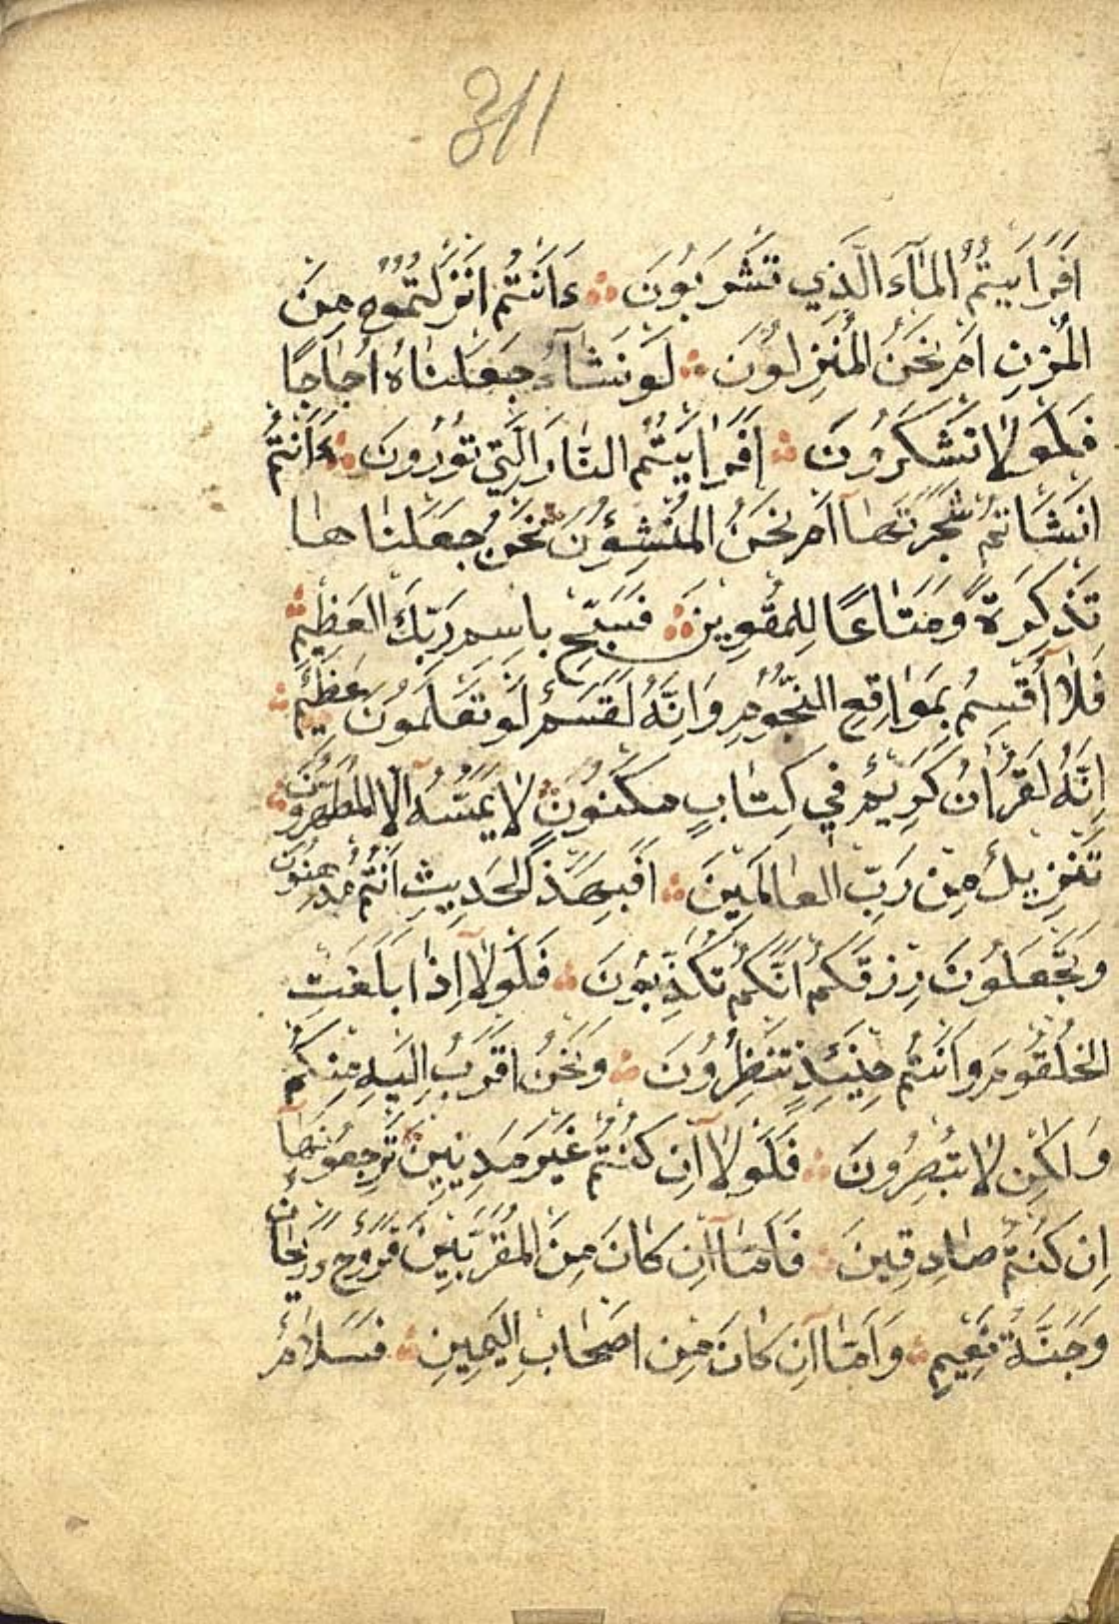 311
اَفَرَاَيْتُمُ الْمَٓاءَ الَّذِي تَشْرَبُونَ ءَاَنْتُمْ اَنْزَلْتُمُوهُ مِنَ
الْمُزْنِ اَمْ نَحْنُ الْمُنْزِلُونَ لَوْ نَشَٓاءُ جَعَلْنَاهُ اُجَاجًا
فَلَوْلَا تَشْكُرُونَ اَفَرَاَيْتُمُ النَّارَ الَّتِي تُورُونَ ءَاَنْتُمْ
اَنْشَاْتُمْ شَجَرَتَهَٓا اَمْ نَحْنُ الْمُنْشِؤُنَ نَحْنُ جَعَلْنَاهَا
تَذْكِرَةً وَمَتَاعًا لِلْمُقْوِينَ فَسَبِّحْ بِاسْمِ رَبِّكَ الْعَظِيمِ
فَلَٓا اُقْسِمُ بِمَوَاقِعِ النُّجُومِ وَاِنَّهُ لَقَسَمٌ لَوْ تَعْلَمُونَ عَظِيمٌ
اِنَّهُ لَقُرْاٰنٌ كَرِيمٌ فِي كِتَابٍ مَكْنُونٍ لَا يَمَسُّهُٓ اِلَّا الْمُطَهَّرُونَ
تَنْزِيلٌ مِنْ رَبِّ الْعَالَمِينَ اَفَبِهٰذَا الْحَدِيثِ اَنْتُمْ مُدْهِنُونَ
وَتَجْعَلُونَ رِزْقَكُمْ اَنَّكُمْ تُكَذِّبُونَ فَلَوْلَٓا اِذَا بَلَغَتِ
الْحُلْقُومَ وَاَنْتُمْ حِينَئِذٍ تَنْظُرُونَ وَنَحْنُ اَقْرَبُ اِلَيْهِ مِنْكُمْ
وَلٰكِنْ لَا تُبْصِرُونَ فَلَوْلَٓا اِنْ كُنْتُمْ غَيْرَ مَدِينِينَ تَرْجِعُونَهَٓا
اِنْ كُنْتُمْ صَادِقِينَ فَاَمَّٓا اِنْ كَانَ مِنَ الْمُقَرَّبِينَ فَرَوْحٌ وَرَيْحَانٌ
وَجَنَّةُ نَعِيمٍ وَاَمَّٓا اِنْ كَانَ مِنْ اَصْحَابِ الْيَمِينِ فَسَلَامٌ